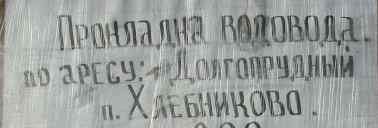 Прокладка водовода.
по аресу: г Долгопрудный
п. Хлебниково.